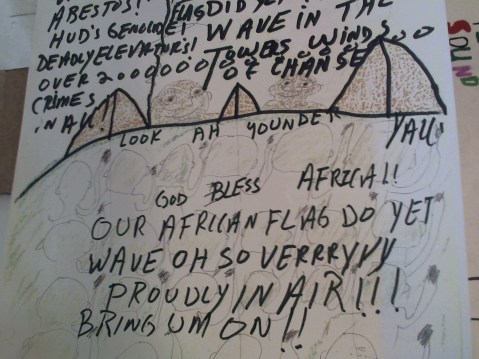 ABESTOS!!
HUD'S GENOCIDE!
DEADLY ELEVATORS!
OVER 2000000
CRIMES
IN ALL!
FLAG DID YET
WAVE IN THE
TOWERS WINDS
OF CHANGE
LOOK AH YOUNDER YALL
GOD BLESS AFRICA!!
OUR AFRICAN FLAG DO YET
WAVE OH SO VERRRYYY
PROUDLY IN AIR!!!
BRING UM ON!!
SOUND